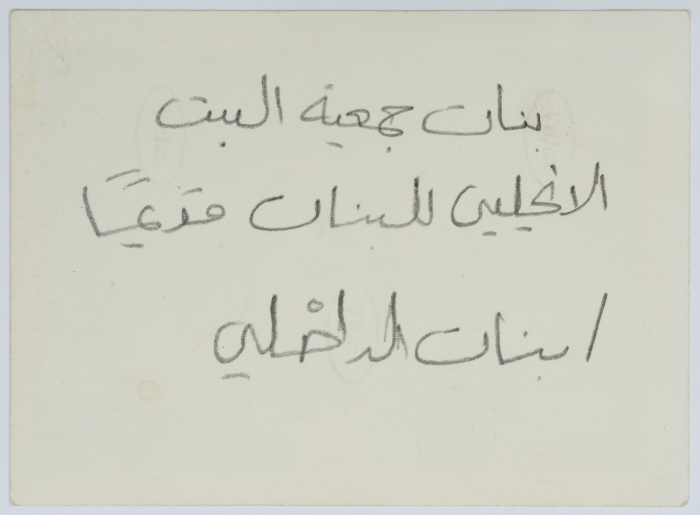 بنات جمعية البيت
الانجيلي للبنات قديمًا
/ بنات الداخلي